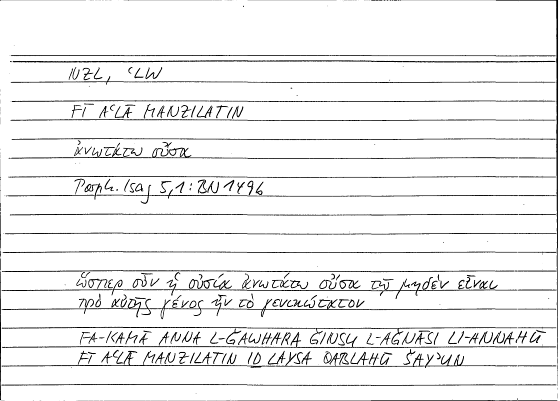 NZL, ʿLW
FĪ AʿLĀ MANZILATIN
ἀνωτάτω οὖσα
Porph. Isag 5,1 : BN 1496
ὥσπερ οὖν ἡ οὐσία ἀνωτάτω οὖσα τῷ μηδὲν εἶναι
πρὸ αὐτῆς γένος ἦν τὸ γενικώτατον
FA-KAMĀ ANNA L-ĞAWHARA ĞINSU L-AĞNĀSI LI-ANNAHŪ
FĪ AʿLĀ MANZILATIN ID LAYSA QABLAHŪ ŠAYʾUN